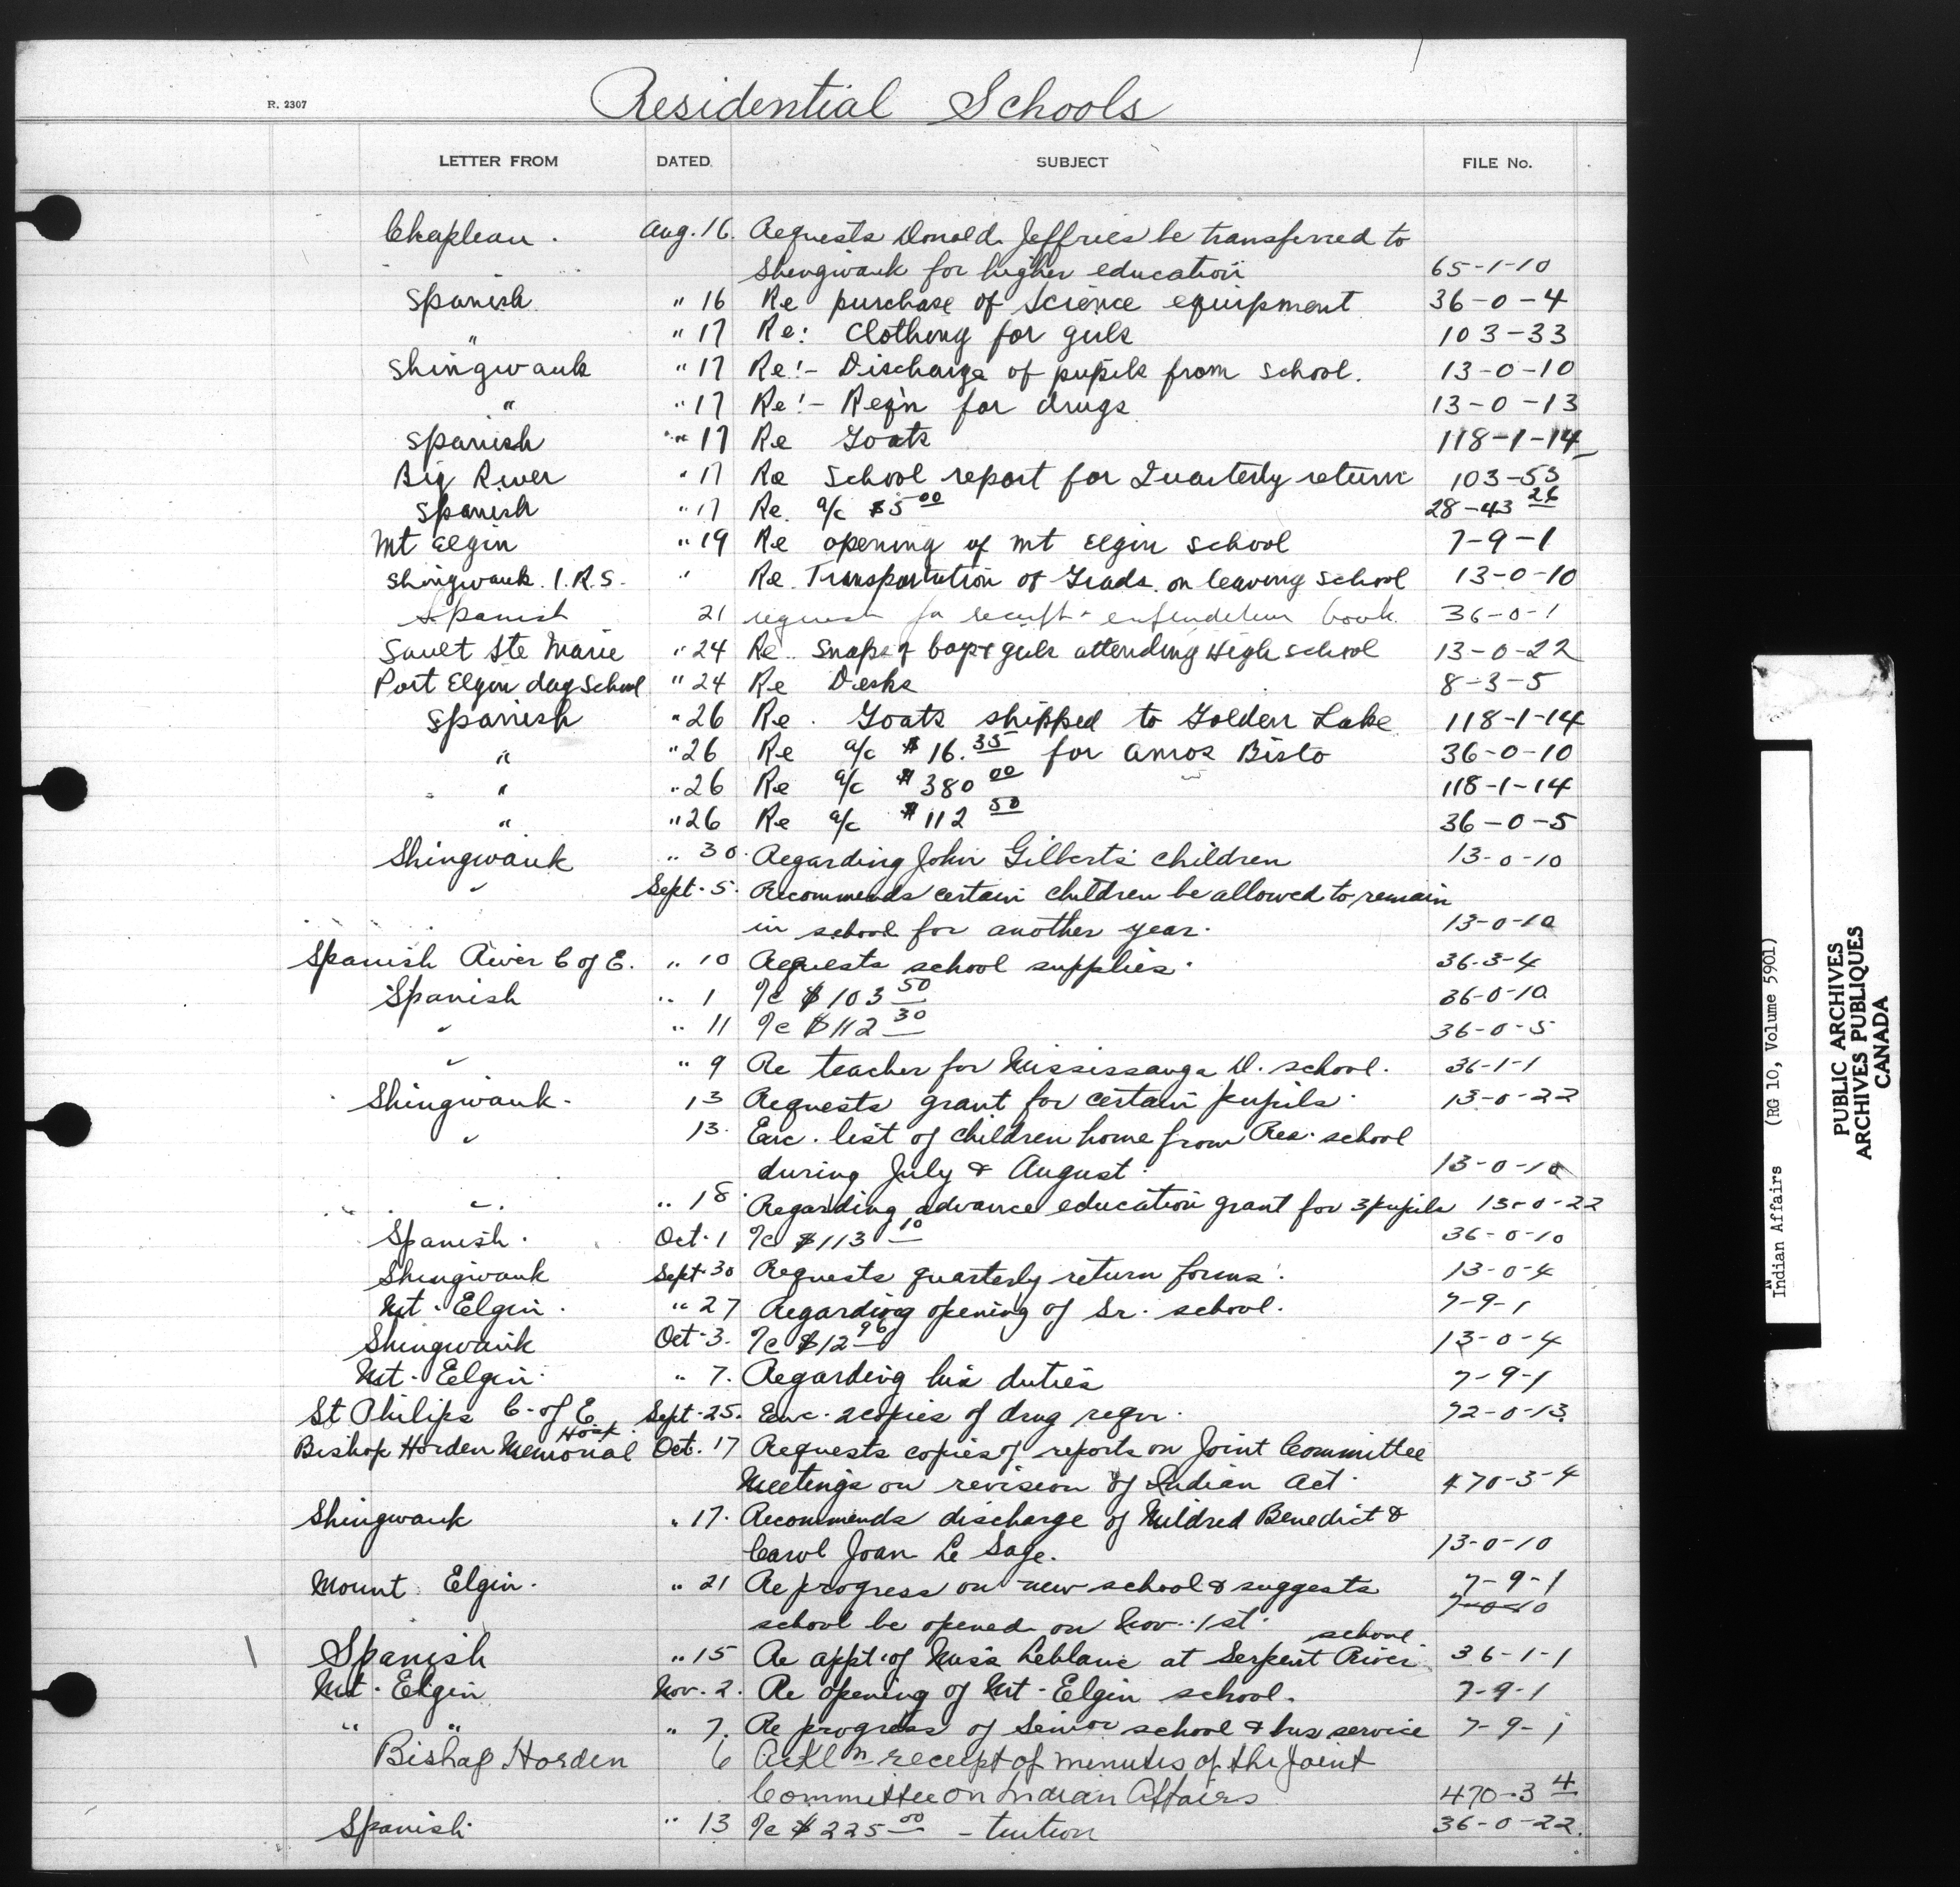 R. 2307
Residential Schools
LETTER FROM DATED. SUBJECT FILE No.
Chapleau. Aug. 16. Requests Donald Jeffries be transferred to
Shingwauk for higher education 65-1-10
Spanish " 16 Re purchase of Science equipment 36-0-4
" " 17 Re: Clothing for girls 103-33
Shingwauk " 17 Re:- Discharge of pupils from school. 13-0-10
" " 17 Re:- Req'n for drugs 13-0-13
Spanish " 17 Re Goats 118-1-14
Big River " 17 Re School report for Quarterly return 103-53
Spanish " 17 Re. a/c $5 00 28-43 26
Mt Elgin " 19 Re opening of Mt Elgin School 7-9-1
Shingwauk I.R.S. " Re. Transportation of Grads. on leaving School 13-0-10
Spanish 21 request for receipt & expenditure book. 36-0-1
Sault Ste Marie " 24 Re. Snaps of boys & girls attending High School 13-0-22
Port Elgin day School " 24 Re Desks 8-3-5
Spanish " 26 Re. Goats shipped to Golden Lake 118-1-14
" " 26 Re a/c $16.35 for Amos Bisto 36-0-10
" " 26 Re a/c $380 00 118-1-14
" " 26 Re a/c $112 50 36-0-5
Shingwauk " 30. Regarding John Gilberts children 13-0-10
" Sept. 5. Recommends certain children be allowed to remain
in school for another year. 13-0-10
Spanish River C of E. " 10 Requests school supplies. 36-3-4
Spanish " 1 a/c $103 50 36-0-10
" " 11 a/c $112 30 36-0-5
" " 9 Re teacher for Mississauga D. school. 36-1-1
Shingwauk. 13 Requests grant for certain pupils. 13-0-22
" 13. Enc. list of children home from Res. school
during July & August. 13-0-10
" " 18. Regarding advance education grant for 3 pupils 13-0-22
Spanish. Oct. 1 a/c $113 10 36-0-10
Shingwauk Sept. 30 Requests quarterly return forms. 13-0-4
Mt. Elgin. " 27 Regarding opening of Sr. school. 7-9-1
Shingwauk Oct. 3. a/c $12 96 13-0-4
Mt. Elgin. " 7. Regarding his duties 7-9-1
St Philips C. of E. Sept. 25. Enc. 2 copies of drug reqn. 72-0-13
Bishop Horden Memorial Hosp. Oct. 17 Requests copies of reports on Joint Committee
Meetings on revision of Indian Act. 470-3-4
Shingwauk " 17. Recommends discharge of Mildred Benedict &
Carol Joan Le Sage. 13-0-10
Mount Elgin. " 21 Re progress on new school & suggests 7-9-1
school be opened on Nov. 1st. 7-0-10
Spanish " 15 Re appt. of Miss Leblanc at Serpent River school. 36-1-1
Mt. Elgin Nov. 2. Re opening of Mt. Elgin school. 7-9-1
" " " 7. Re progress of Senior school & bus service 7-9-1
Bishop Horden 6 Ackn receipt of minutes of the Joint
Committee on Indian Affairs 470-3 4
Spanish. " 13 a/c $225 00 - tuition 36-0-22.
Indian Affairs (RG 10, Volume 5901)
PUBLIC ARCHIVES
ARCHIVES PUBLIQUES
CANADA